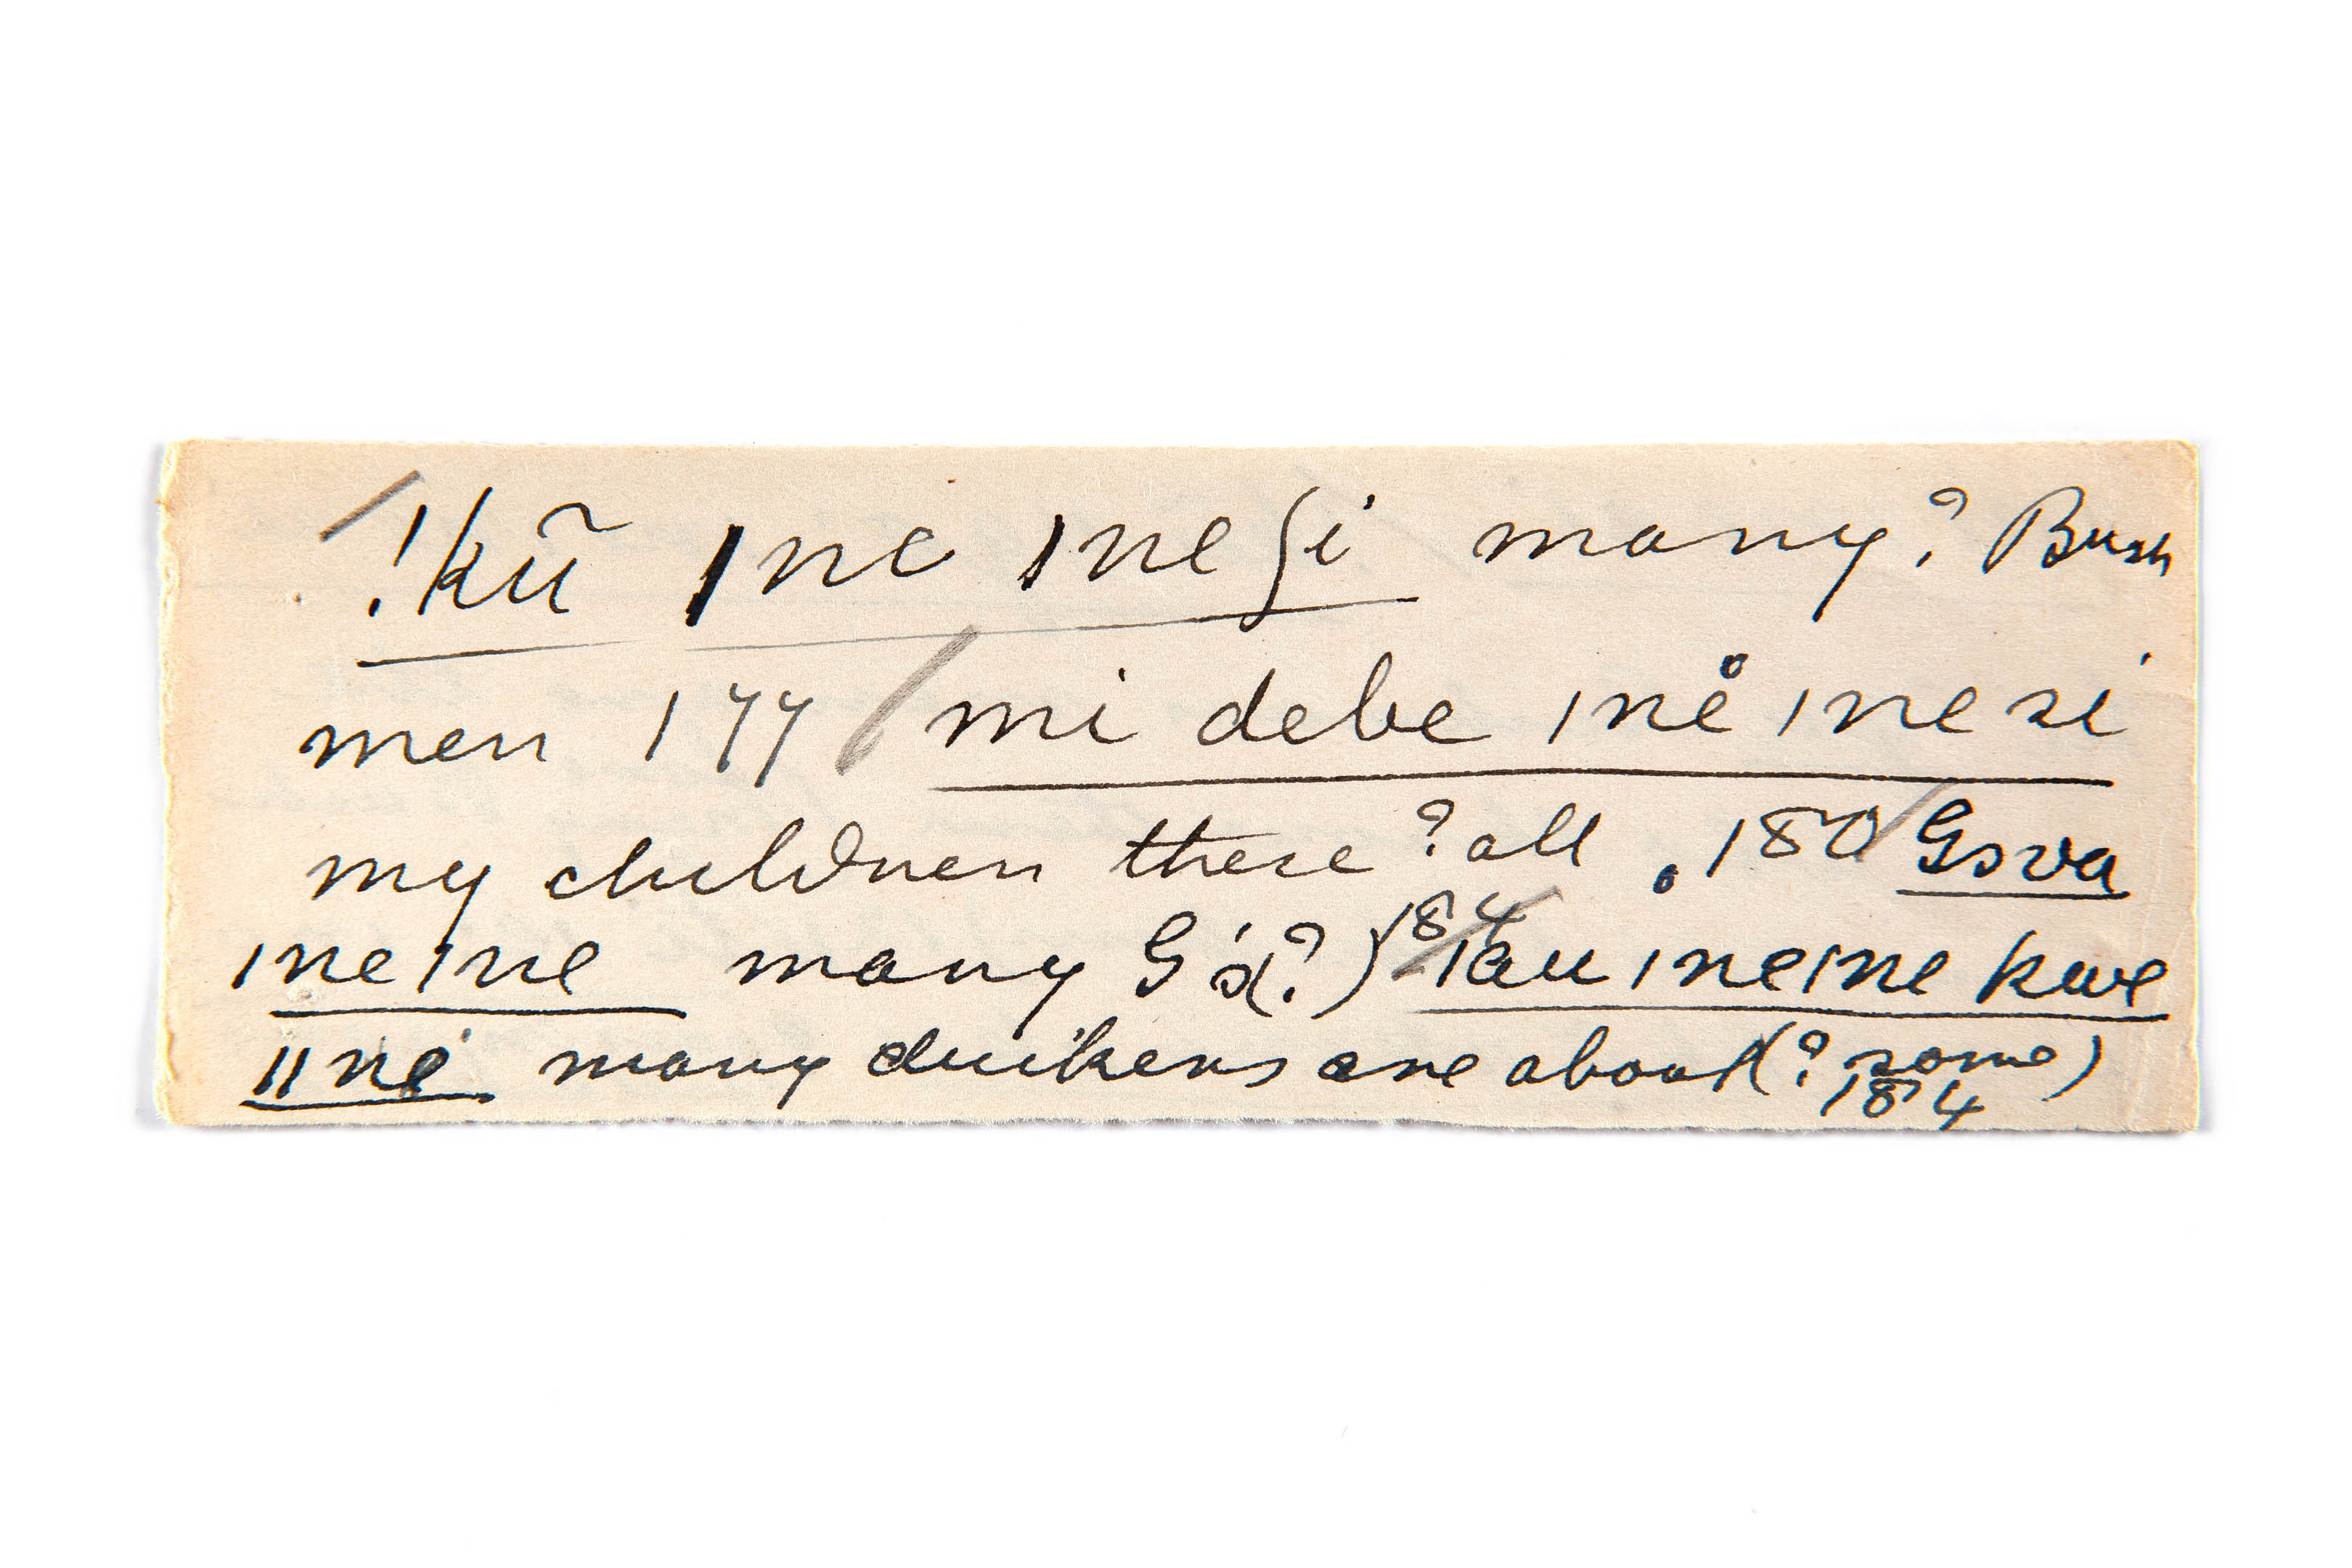 !kũ ǀne ǀneʃi many? Bush
men 177 / mi debe ǀnė ǀnesi
my children these? all . 180 / Gova
ǀneǀne many G's(?) 184 / ǀau ǀneǀne kwe
ǁne many duikers are about (? some)
184